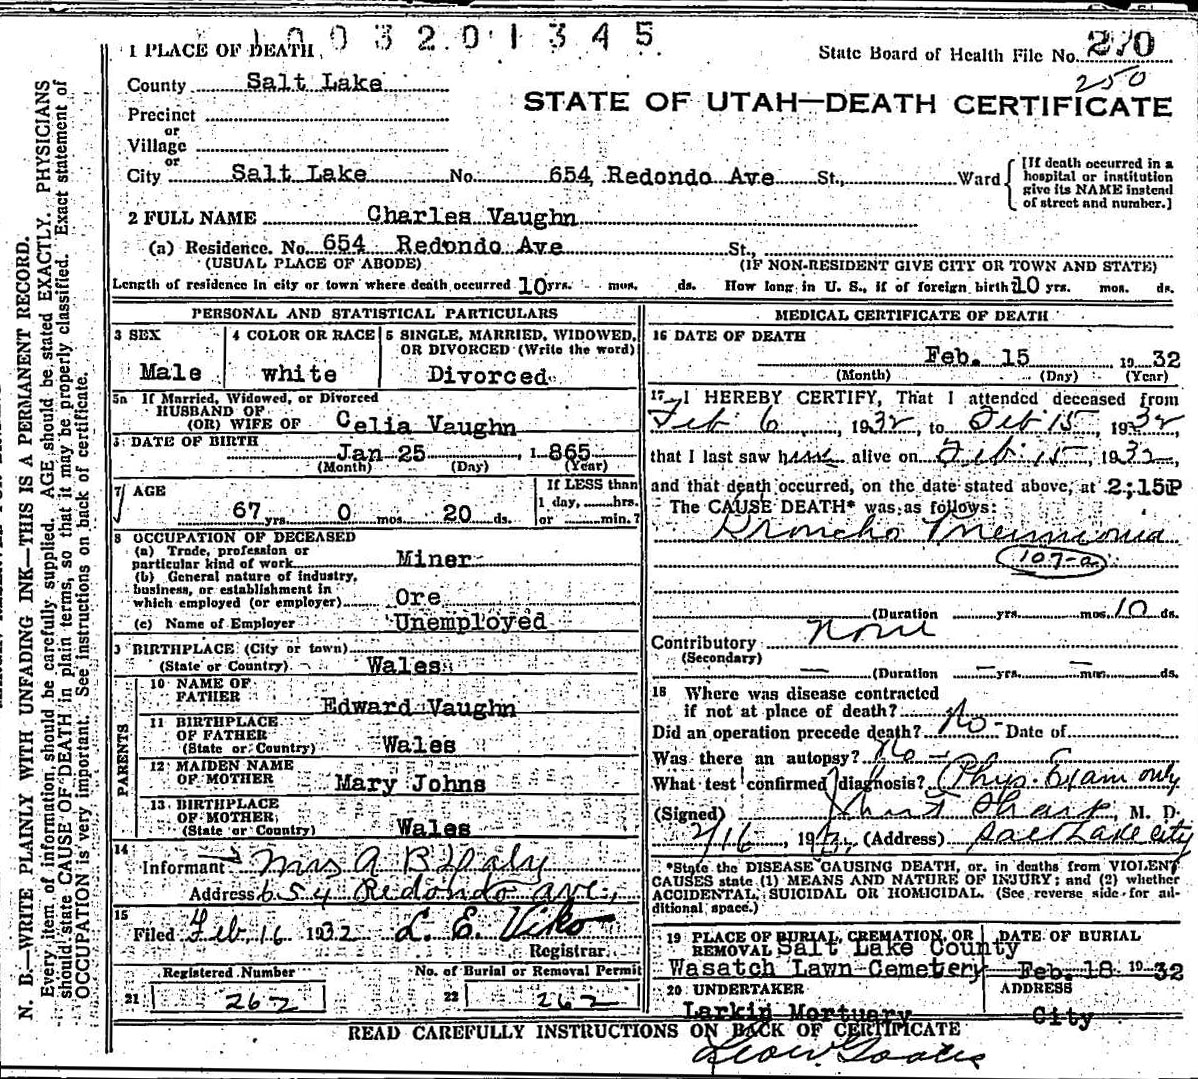 1003201345
1 PLACE OF DEATH
State Board of Health File No. 270
250
County Salt Lake
STATE OF UTAH—DEATH CERTIFICATE
Precinct
or
Village
or
City Salt Lake No. 654 Redondo Ave St., Ward
[If death occurred in a hospital or institution give its NAME instead of street and number.]
2 FULL NAME Charles Vaughn
(a) Residence. No. 654 Redondo Ave St.,
(USUAL PLACE OF ABODE) (IF NON-RESIDENT GIVE CITY OR TOWN AND STATE)
Length of residence in city or town where death occurred 10 yrs. mos. ds. How long in U. S., if of foreign birth? 10 yrs. mos. ds.
PERSONAL AND STATISTICAL PARTICULARS
3 SEX
Male
4 COLOR OR RACE
white
5 SINGLE, MARRIED, WIDOWED, OR DIVORCED (Write the word)
Divorced
5a If Married, Widowed, or Divorced
HUSBAND OF
(OR) WIFE OF Celia Vaughn
6 DATE OF BIRTH
Jan 25, 1865
(Month) (Day) (Year)
7 AGE
67 yrs. 0 mos. 20 ds.
If LESS than
1 day, hrs.
or min.?
8 OCCUPATION OF DECEASED
(a) Trade, profession or
particular kind of work Miner
(b) General nature of industry,
business, or establishment in
which employed (or employer) Ore
(c) Name of Employer Unemployed
9 BIRTHPLACE (City or town)
(State or Country) Wales
PARENTS
10 NAME OF
FATHER Edward Vaughn
11 BIRTHPLACE
OF FATHER
(State or Country) Wales
12 MAIDEN NAME
OF MOTHER Mary Johns
13 BIRTHPLACE
OF MOTHER
(State or Country) Wales
14
Informant Mrs A B
Address 654 Redondo ave,
15
Filed Feb, 16 1932 L. E. Viko
Registrar.
Registered Number No. of Burial or Removal Permit
21 262 22 262
MEDICAL CERTIFICATE OF DEATH
16 DATE OF DEATH
Feb. 15 1932
(Month) (Day) (Year)
17 I HEREBY CERTIFY, That I attended deceased from
Feb 6, 1932, to Feb 15, 1932,
that I last saw him alive on Feb. 15, 1932,
and that death occurred, on the date stated above, at 2;15P
The CAUSE DEATH* was as follows:
Broncho Pneumonia
107-a
(Duration yrs. mos. 10 ds.
Contributory None
(Secondary)
— (Duration — yrs. — mos. ds.
18 Where was disease contracted
if not at place of death?
Did an operation precede death? No- Date of
Was there an autopsy? No —
What test confirmed diagnosis? Phys. Exam only
(Signed) Sharp, M. D.
2/16, 1932 (Address) Salt Lake City
*State the DISEASE CAUSING DEATH, or, in deaths from VIOLENT
CAUSES state (1) MEANS AND NATURE OF INJURY; and (2) whether
ACCIDENTAL, SUICIDAL OR HOMICIDAL. (See reverse side for ad-
ditional space.)
19 PLACE OF BURIAL, CREMATION, OR
REMOVAL Salt Lake County
Wasatch Lawn Cemetery
DATE OF BURIAL
Feb. 18 1932
20 UNDERTAKER
Larkin Mortuary
ADDRESS
City
READ CAREFULLY INSTRUCTIONS ON BACK OF CERTIFICATE
N. B.—WRITE PLAINLY WITH UNFADING INK—THIS IS A PERMANENT RECORD.
Every item of information should be carefully supplied. AGE should be stated EXACTLY. PHYSICIANS
should state CAUSE OF DEATH in plain terms, so that it may be properly classified. Exact statement of
OCCUPATION is very important. See instructions on back of certificate.